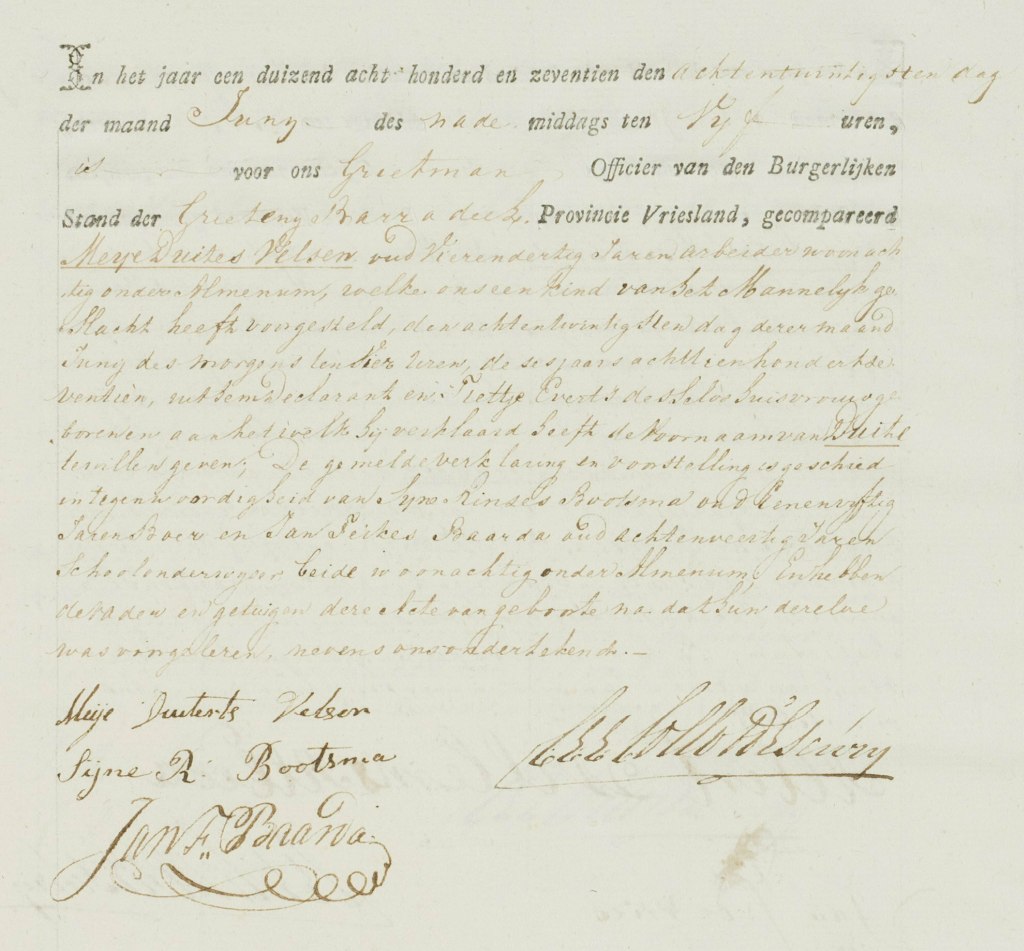 In het jaar een duizend acht honderd en zeventien den achtentwintigsten dag
der maand Juny des nade middags ten Vyf uren,
is voor ons Grietman Officier van den Burgerlijken
Stand der Grieteny Barradeel. Provincie Vriesland, gecompareerd
Meye Duites Velsen oud Vierendertig Jaren arbeider woonach
tig onder Almenum, welke ons een kind van het Mannelyk ge
slacht heeft voorgesteld, den achtentwintigsten dag derer maand
Juny des morgens ten Vier Uren, deses jaars achttienhondertze
ventien, uit hem Declarant en Tiettje Everts deszelvs huisvrouw ge
boren en aan het welk hy verklaard heeft de Voornaam van Duite
te willen geven; De gemelde verklaring en voorstelling is geschied
in tegenwoordigheid van Syne Rinses Bootsma oud Eenenvyftig
Jaren Boer en Jan Feikes Baarda oud achtenveertig Jaren
Schoolonderwyser beide woonachtig onder Almenum, En hebben
de vader en getuigen dere Acte van geboorte na dat hun derelve
was voorgeleren, nevens ons ondertekend. —
Meije Duiterts Velsen
Sijne R: Bootsma
Jan F. Baarda
Collot d'Escury